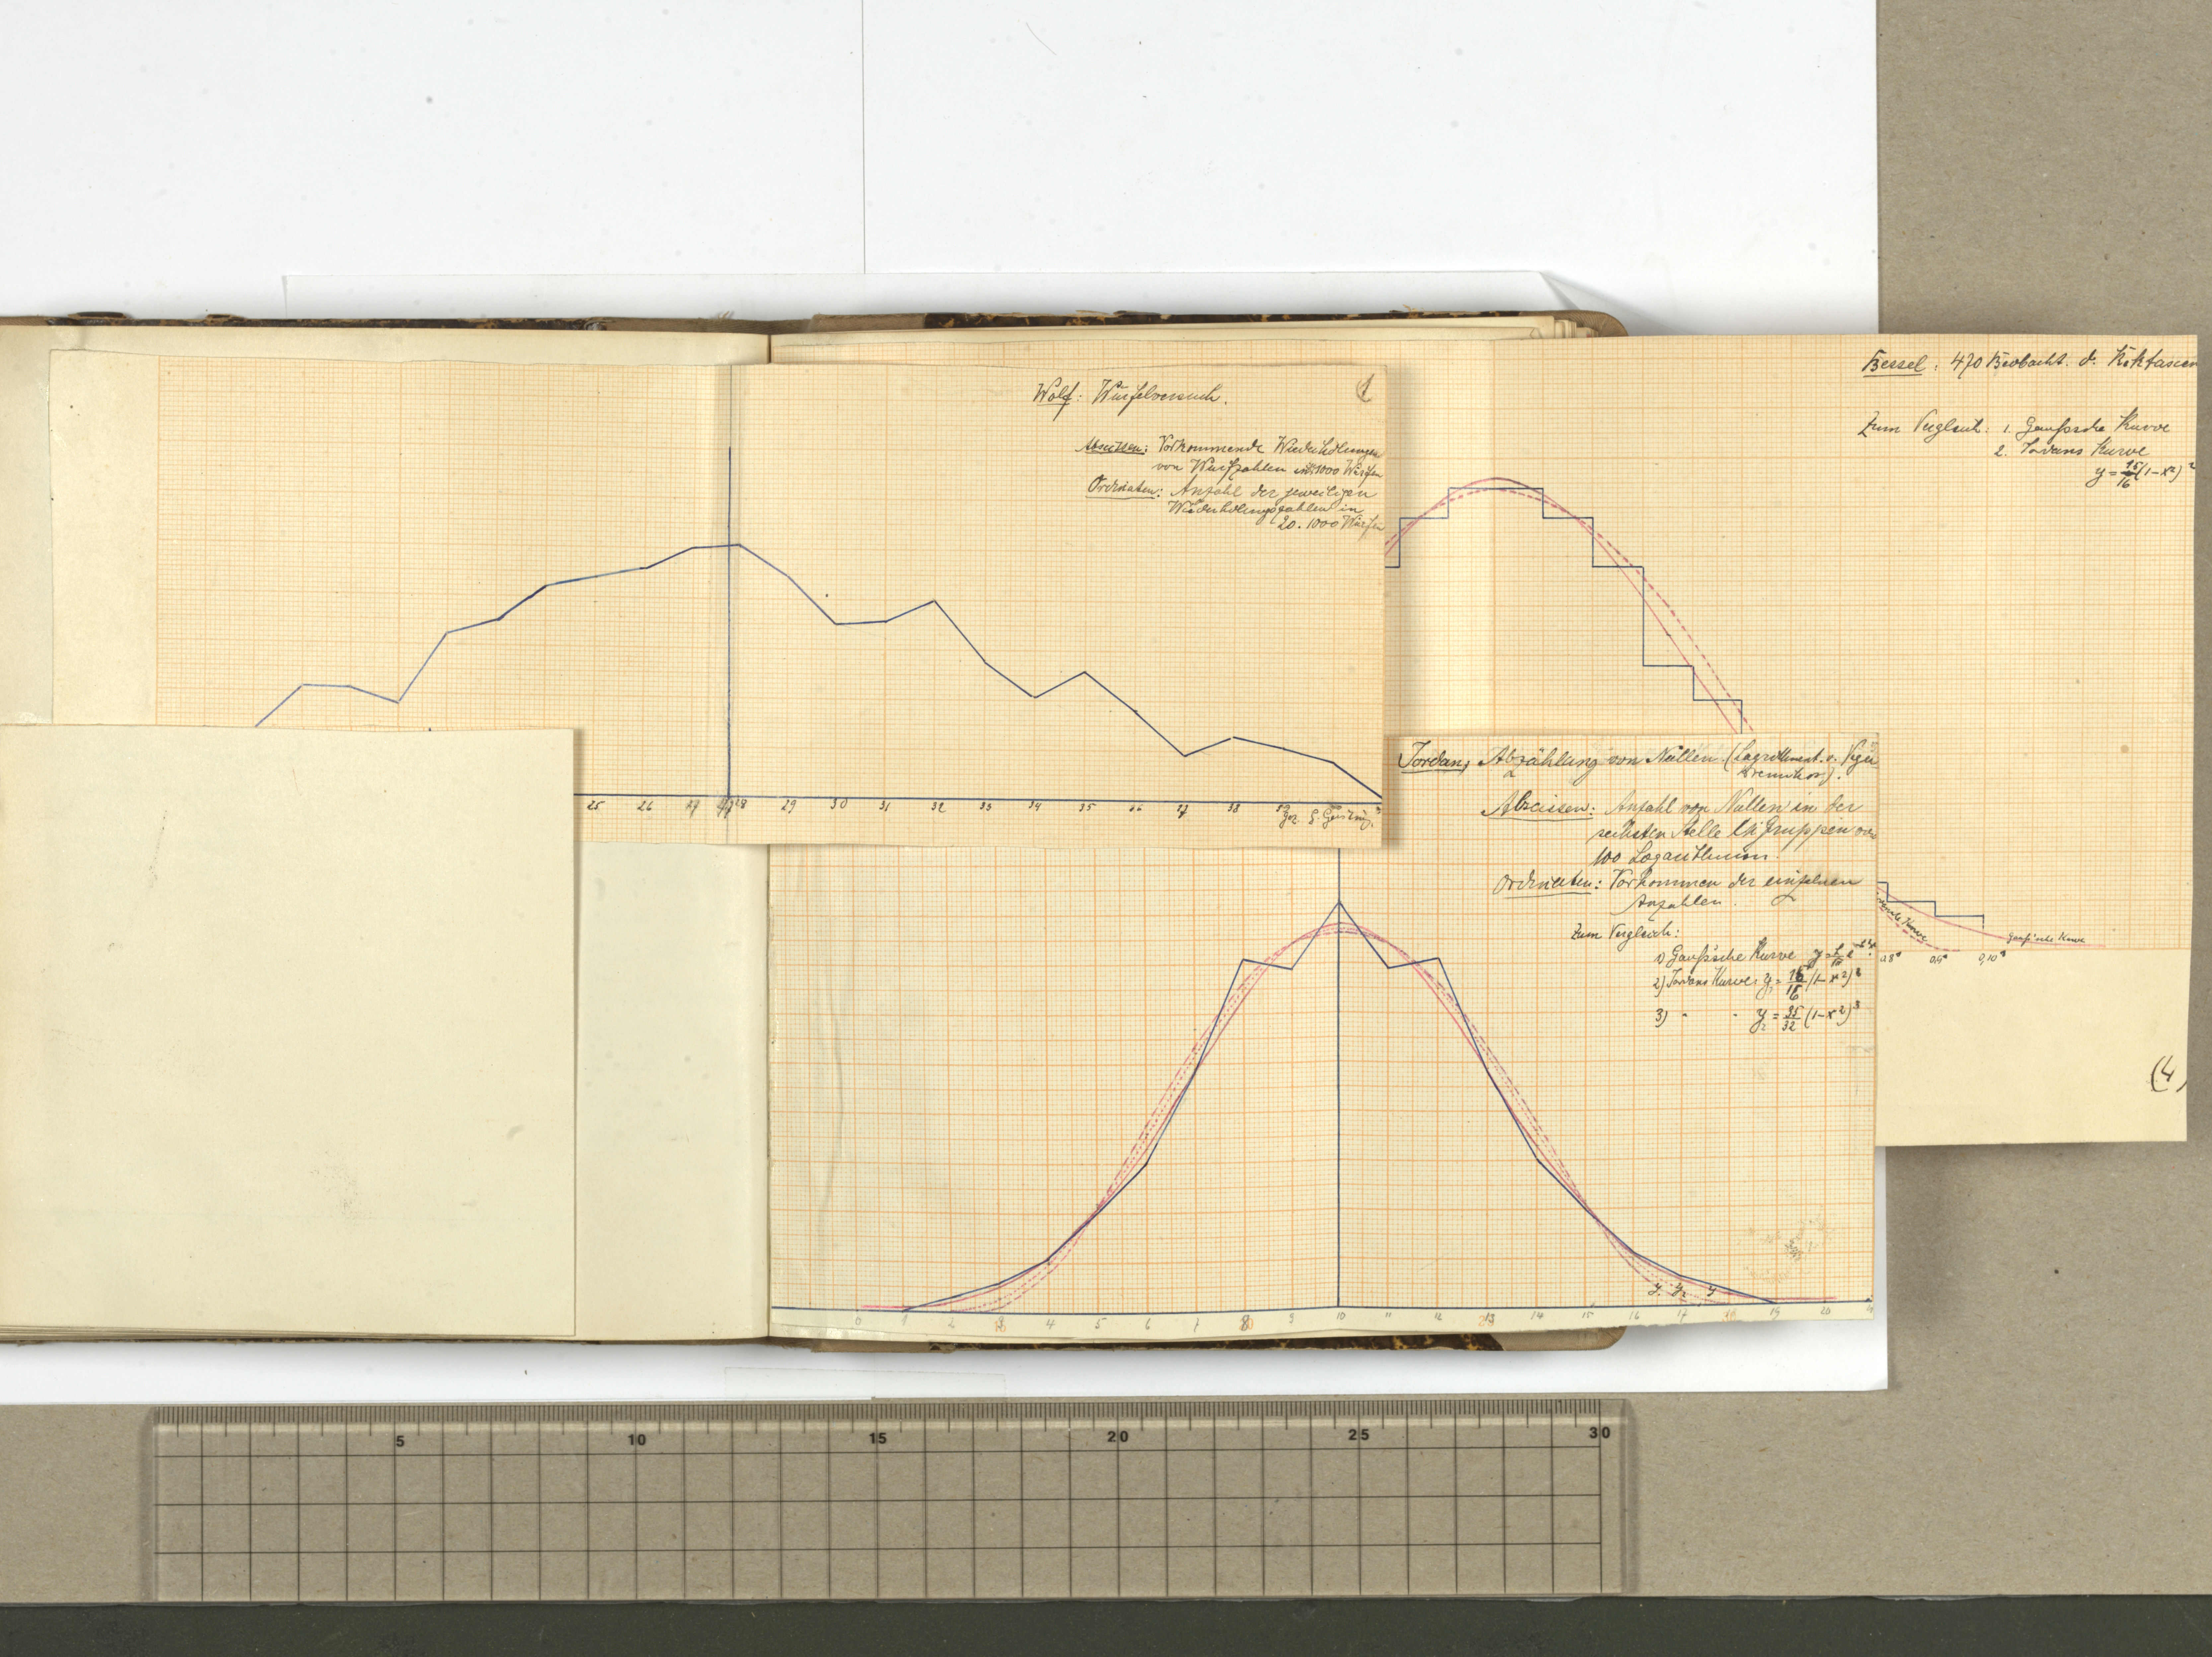 Wolf: Würfelversuch.
1
Abscissen: Vorkommende Wiederholungen
von Wurfzahlen in 1000 Würfen
Ordinaten: Anzahl der jeweiligen
Wiederholungszahlen in
20.1000 Würfen
25 26 27 28 29 30 31 32 33 34 35 36 37 38 39
gez.
Bessel: 470 Beobacht. d.
Zum Vergleich: 1. Gaußsche Kurve
2. Jordans Kurve
y = 15/16 (1-x²)²
Kurve
Gauß'sche Kurve
0,8" 0,9" 0,10"
(4)
Jordan, Abzählung von Nullen. (Logarithment. v. Vega
Abscissen: Anzahl von Nullen in der
sechsten Stelle bei Gruppen von
100 Logarithmen.
Ordinaten: Vorkommen der einzelnen
Anzahlen.
Zum Vergleich:
1) Gauß'sche Kurve
2) Jordans Kurve: y₁ = 15/16 (1-x²)²
3) " " y₂ = 35/32 (1-x²)³
y₁ y₂ y
0 1 2 3 4 5 6 7 8 9 10 11 12 13 14 15 16 17 18 19 20 21
5 10 15 20 25 30